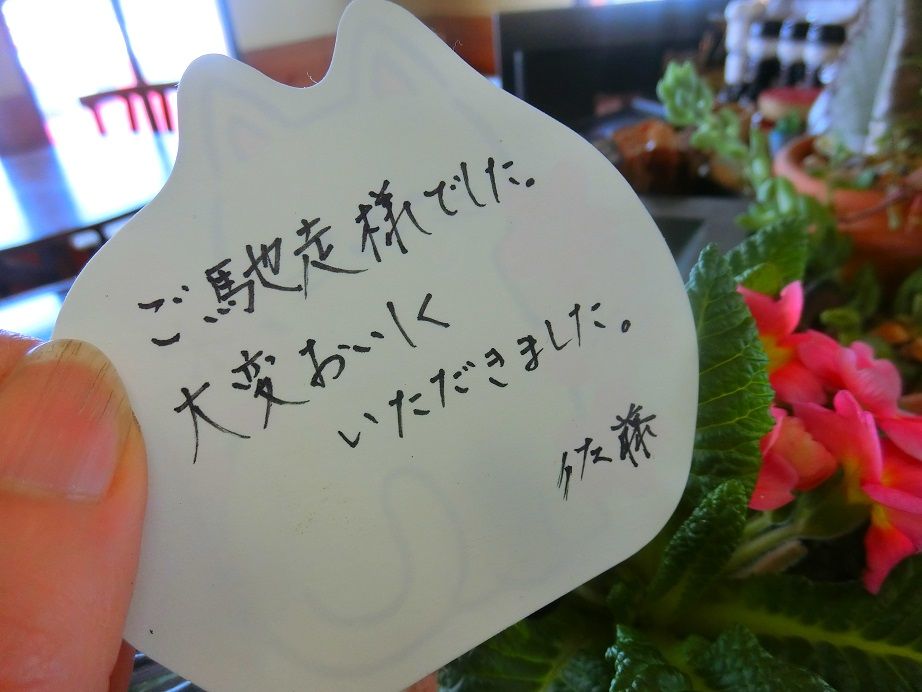 ご馳走様でした。
大変おいしく
いただきました。
佐藤